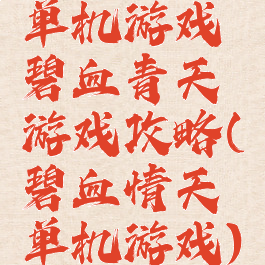 单机游戏
碧血青天
游戏攻略(
碧血情天
单机游戏)